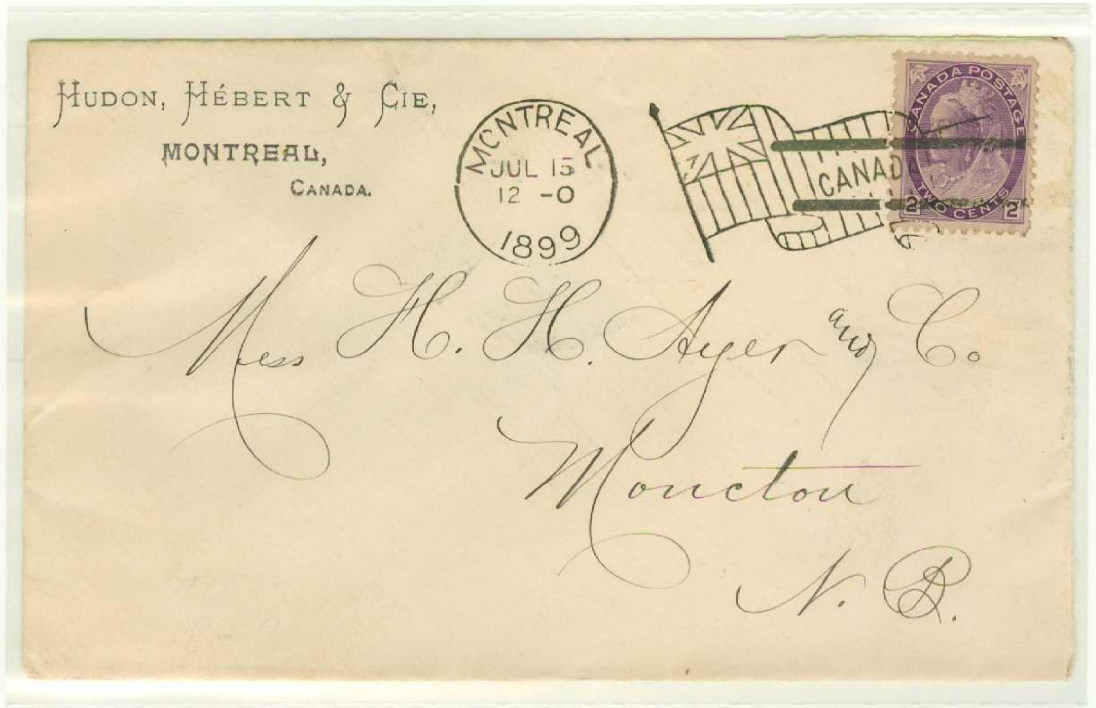 HUDON, HÉBERT & CIE,
MONTREAL,
CANADA.
MONTREAL
JUL 15
12 -0
1899
CANAD
CANADA POSTAGE
2 TWO CENTS 2
Mess H. H. Ayer and Co.
Moncton
N. B.